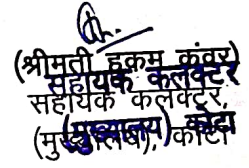 (श्रीमती हुक्म कंवर)
सहायक कलक्टर
सहायक कलक्टर,
(मुख्यालय) कोटा
(मुख्यालय), कोटा